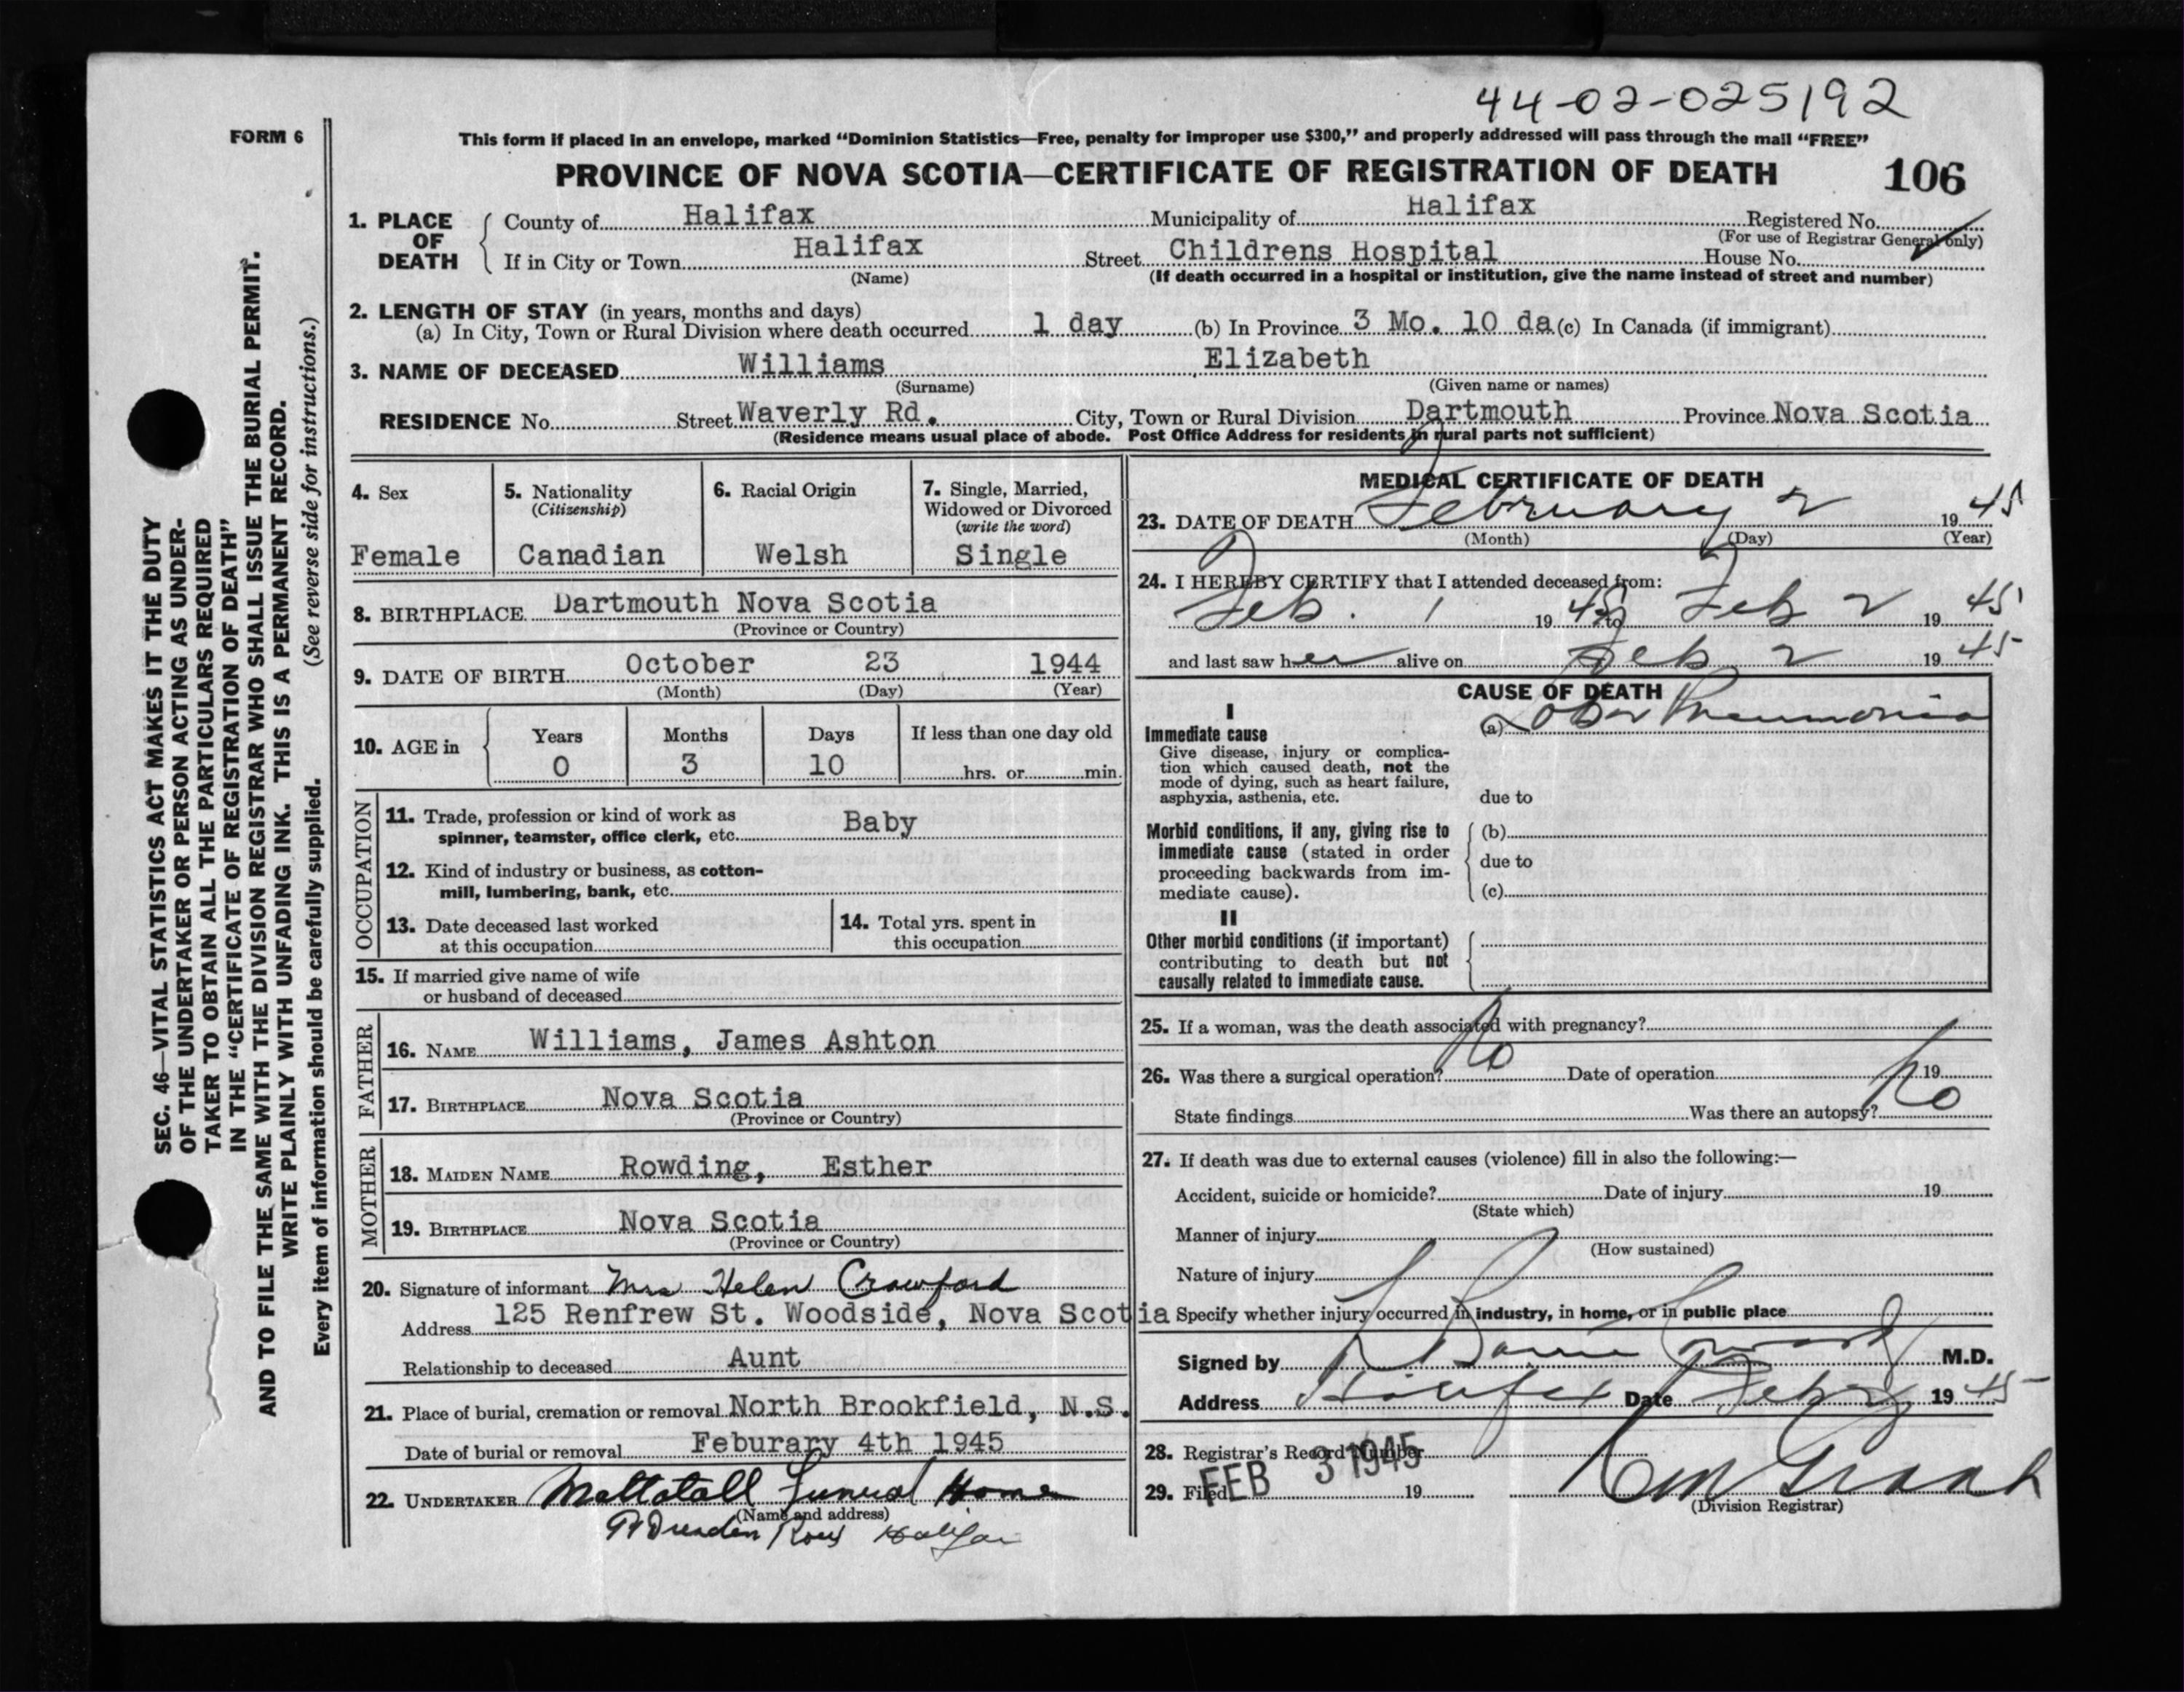 44-02-025192
FORM 6
This form if placed in an envelope, marked “Dominion Statistics—Free, penalty for improper use $300,” and properly addressed will pass through the mail “FREE”
PROVINCE OF NOVA SCOTIA—CERTIFICATE OF REGISTRATION OF DEATH 106
1. PLACE OF DEATH
County of Halifax Municipality of Halifax Registered No.
(For use of Registrar General only)
If in City or Town Halifax Street Childrens Hospital House No.
(Name) (If death occurred in a hospital or institution, give the name instead of street and number)
2. LENGTH OF STAY (in years, months and days)
(a) In City, Town or Rural Division where death occurred 1 day (b) In Province 3 Mo. 10 da (c) In Canada (if immigrant)
3. NAME OF DECEASED Williams Elizabeth
(Surname) (Given name or names)
RESIDENCE No. Street Waverly Rd. City, Town or Rural Division Dartmouth Province Nova Scotia
(Residence means usual place of abode. Post Office Address for residents in rural parts not sufficient)
4. Sex
Female
5. Nationality
(Citizenship)
Canadian
6. Racial Origin
Welsh
7. Single, Married,
Widowed or Divorced
(write the word)
Single
8. BIRTHPLACE Dartmouth Nova Scotia
(Province or Country)
9. DATE OF BIRTH October 23 1944
(Month) (Day) (Year)
10. AGE in
Years Months Days If less than one day old
0 3 10 hrs. or min.
OCCUPATION
11. Trade, profession or kind of work as
spinner, teamster, office clerk, etc. Baby
12. Kind of industry or business, as cotton-
mill, lumbering, bank, etc.
13. Date deceased last worked
at this occupation
14. Total yrs. spent in
this occupation
15. If married give name of wife
or husband of deceased
FATHER
16. NAME Williams, James Ashton
17. BIRTHPLACE Nova Scotia
(Province or Country)
MOTHER
18. MAIDEN NAME Rowding, Esther
19. BIRTHPLACE Nova Scotia
(Province or Country)
20. Signature of informant Mrs Helen Crawford
Address 125 Renfrew St. Woodside, Nova Scotia
Relationship to deceased Aunt
21. Place of burial, cremation or removal North Brookfield, N.S.
Date of burial or removal Feburary 4th 1945
22. UNDERTAKER Mattatall Funeral Home
(Name and address)
Dresden Row Halifax
MEDICAL CERTIFICATE OF DEATH
23. DATE OF DEATH February 2 1945
(Month) (Day) (Year)
24. I HEREBY CERTIFY that I attended deceased from:
Feb. 1 1945 to Feb 2 1945
and last saw her alive on Feb 2 1945
CAUSE OF DEATH
I
Immediate cause
Give disease, injury or complica-
tion which caused death, not the
mode of dying, such as heart failure,
asphyxia, asthenia, etc.
(a) Lobar Pneumonia
due to
Morbid conditions, if any, giving rise to
immediate cause (stated in order
proceeding backwards from im-
mediate cause).
(b)
due to
(c)
II
Other morbid conditions (if important)
contributing to death but not
causally related to immediate cause.
25. If a woman, was the death associated with pregnancy?
26. Was there a surgical operation? No Date of operation 19
State findings Was there an autopsy? No
27. If death was due to external causes (violence) fill in also the following:—
Accident, suicide or homicide? Date of injury 19
(State which)
Manner of injury
(How sustained)
Nature of injury
Specify whether injury occurred in industry, in home, or in public place
Signed by M.D.
Address Halifax Date Feb 2 1945
28. Registrar’s Record Number
29. Filed FEB 3 1945 19
(Division Registrar)
SEC. 46—VITAL STATISTICS ACT MAKES IT THE DUTY
OF THE UNDERTAKER OR PERSON ACTING AS UNDER-
TAKER TO OBTAIN ALL THE PARTICULARS REQUIRED
IN THE “CERTIFICATE OF REGISTRATION OF DEATH”
AND TO FILE THE SAME WITH THE DIVISION REGISTRAR WHO SHALL ISSUE THE BURIAL PERMIT.
WRITE PLAINLY WITH UNFADING INK. THIS IS A PERMANENT RECORD.
Every item of information should be carefully supplied. (See reverse side for instructions.)